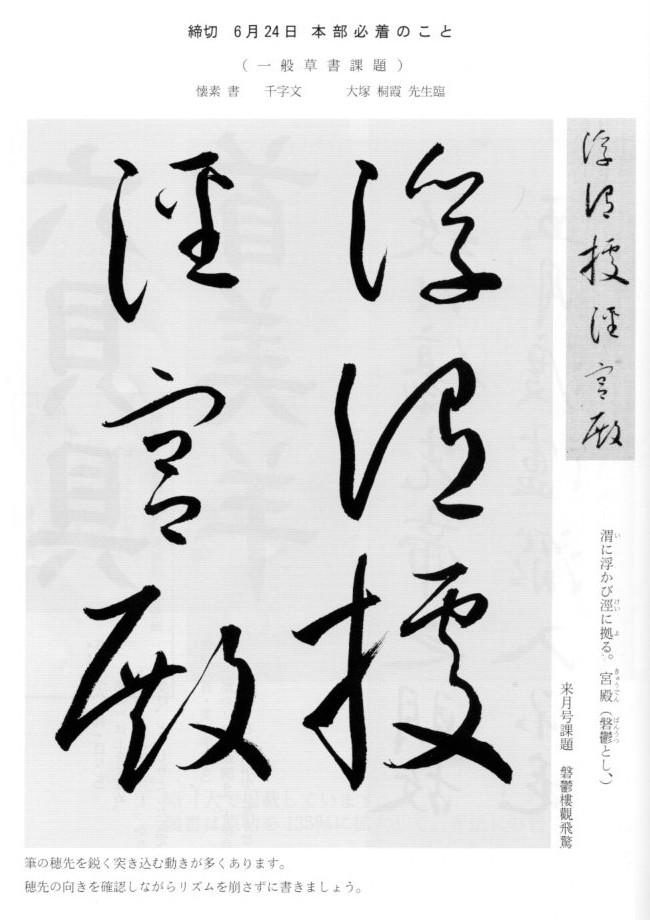 締切 6月24日 本部必着のこと
(一般草書課題)
懐素 書 千字文 大塚 桐霞 先生臨
浮渭據
涇宮殿
浮渭據涇宮殿
渭に浮かび涇に拠る。宮殿(磐鬱とし、)
い けい よ きゅうでん ばんうつ
来月号課題 磐鬱樓觀飛驚
筆の穂先を鋭く突き込む動きが多くあります。
穂先の向きを確認しながらリズムを崩さずに書きましょう。